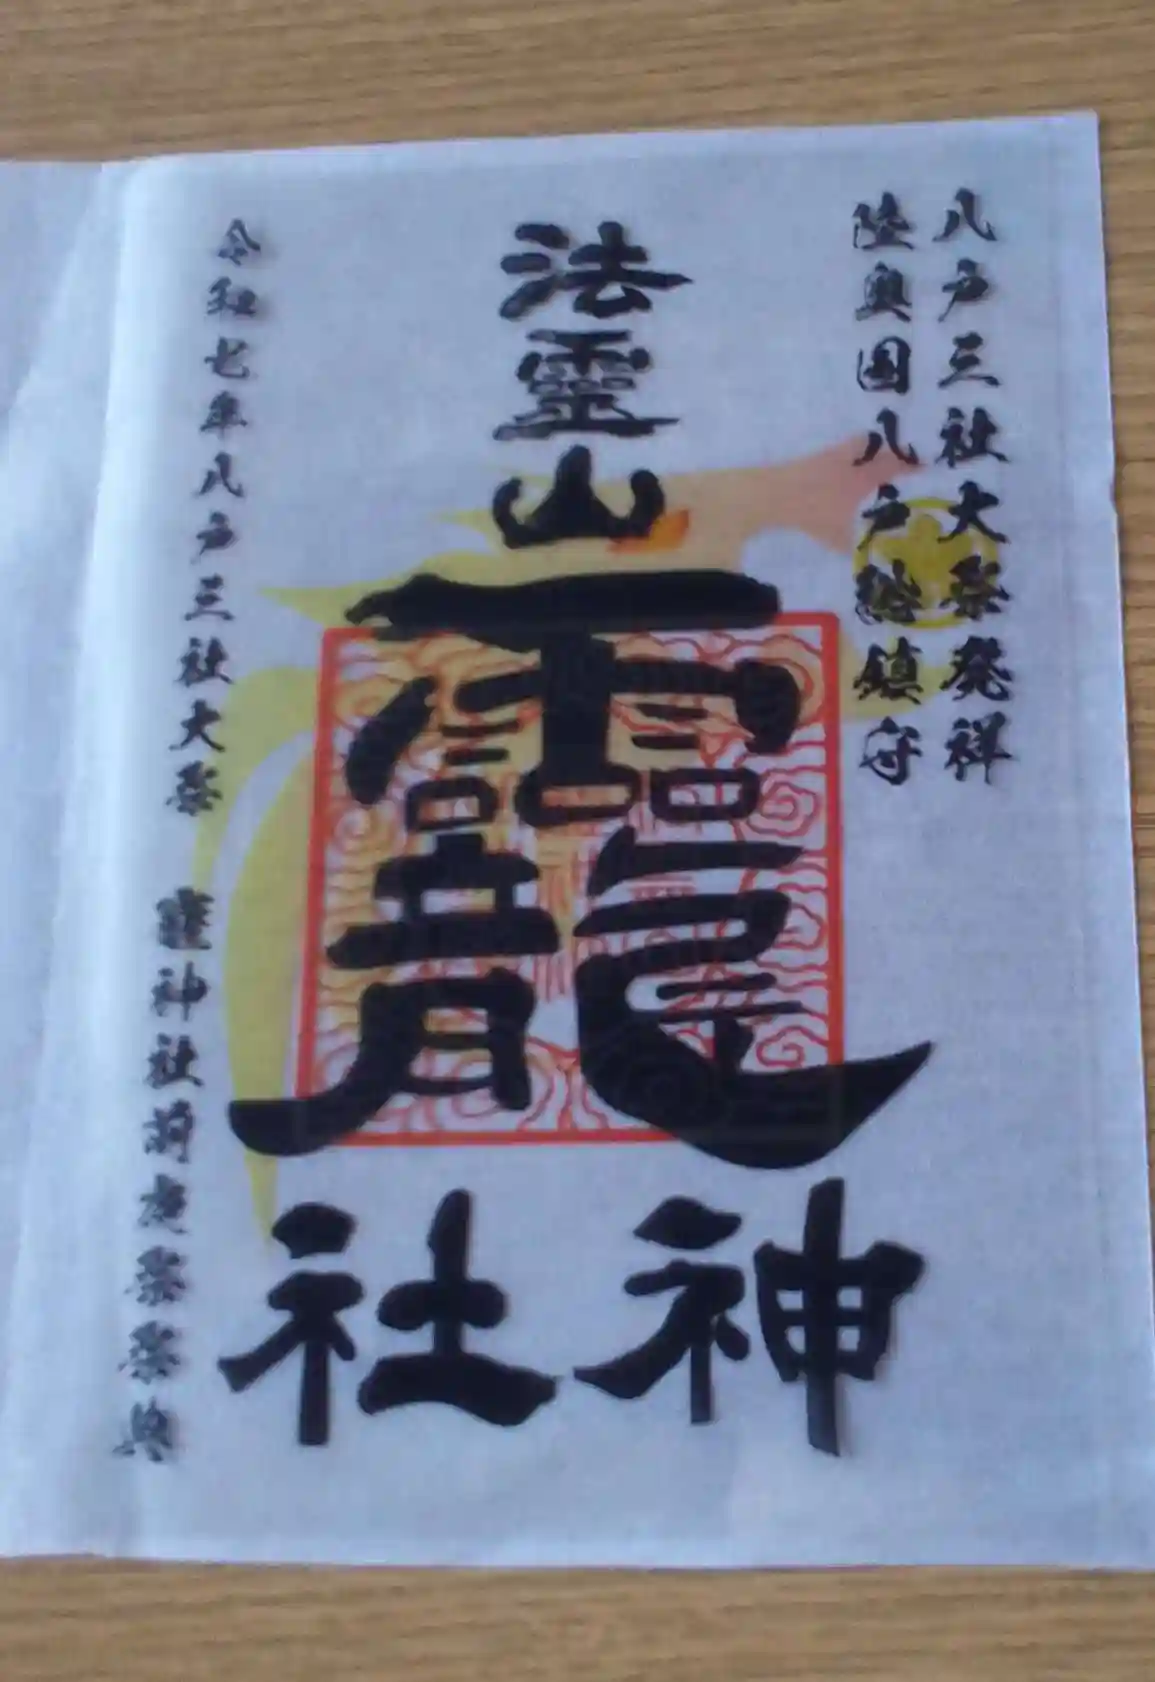 八戸三社大祭発祥
陸奥国八戸総鎮守
法霊山
龗
神社
令和七年八戸三社大祭 龗神社前夜祭祭典